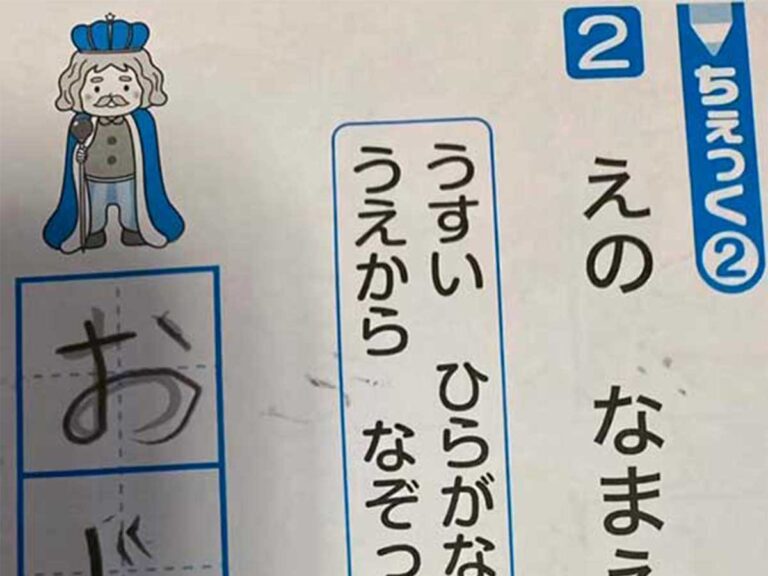 ちえっく②
2
えの なまえ
うすい ひらがな
うえから なぞっ
お